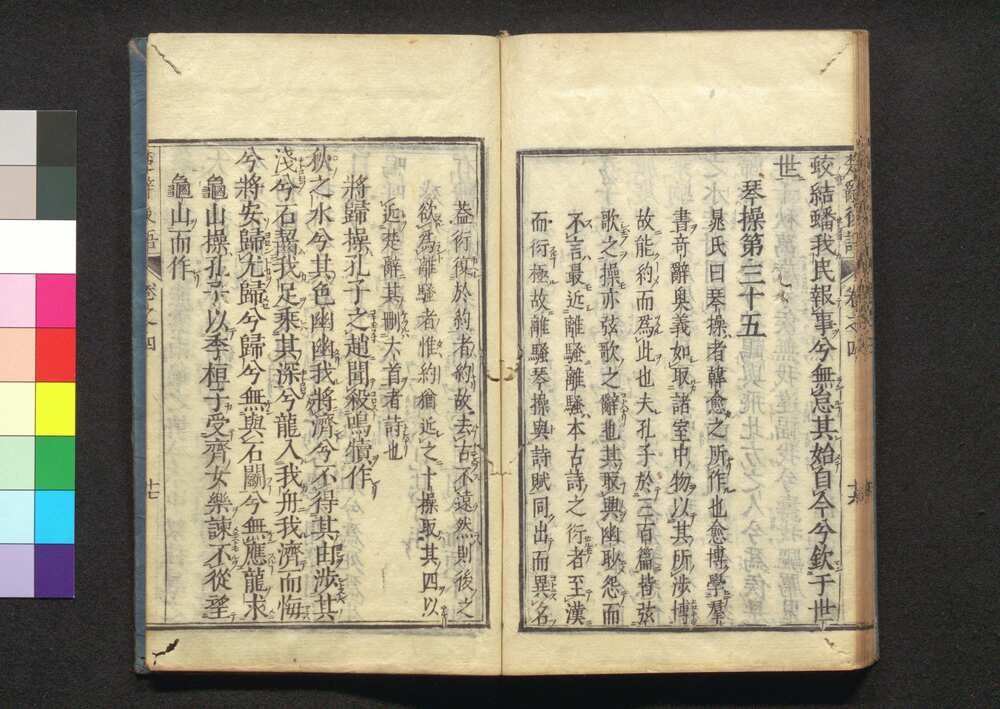 蛟結蟠我民報事兮無怠其始自今兮欽于世
世
琴操第三十五
晁氏曰琴操者韓愈之所作也愈博學羣
書奇辭奧義如取諸室中物以其所涉博
故能約而爲此也夫孔子於三百篇皆弦
歌之操亦弦歌之辭也其取興幽眇怨而
不言最近離騷離騷本古詩之衍者至漢
而衍極故離騷琴操與詩賦同出而異名
蓋衍復於約者約故去古不遠然則後之
欲爲離騷者惟約猶近之十操取其四以
近楚辭其刪六首者詩也
將歸操孔子之趙聞殺鳴犢作
秋之水兮其色幽幽我將濟兮不得其由涉其
淺兮石齧我足乘其深兮龍入我舟我濟而悔
兮將安歸尤歸兮歸兮無與石鬬兮無應龍求
龜山操孔子以季桓子受齊女樂諫不從望
龜山而作
楚辭後語 卷之四 十七